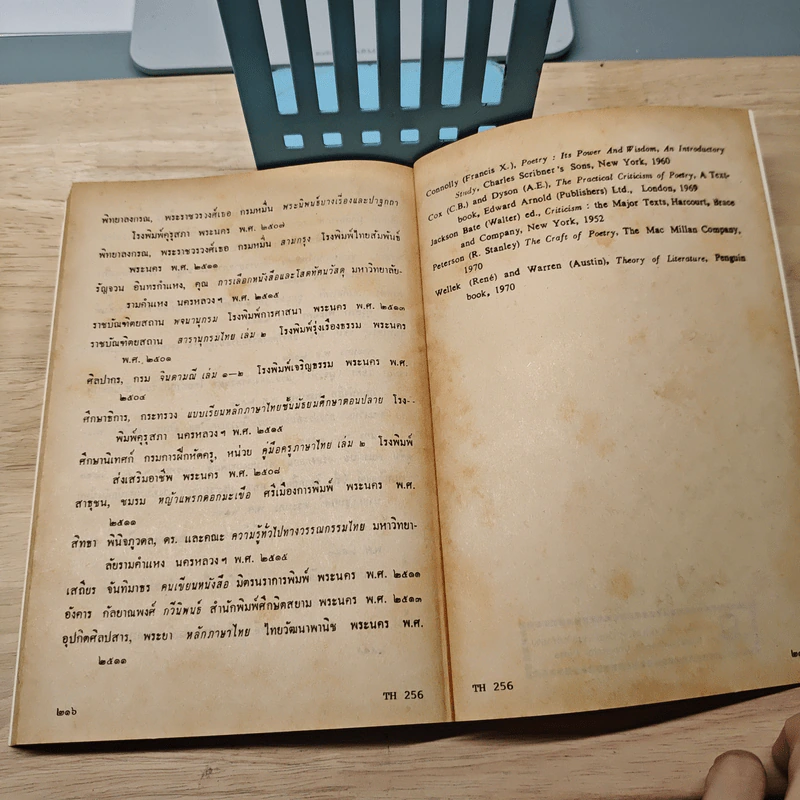 พิทยาลงกรณ, พระราชวรวงศ์เธอ กรมหมื่น พระนิพนธ์บางเรื่องและปาฐกถา
โรงพิมพ์คุรุสภา พระนคร พ.ศ. ๒๕๐๗
พิทยาลงกรณ, พระราชวรวงศ์เธอ กรมหมื่น สามกรุง โรงพิมพ์ไทยสัมพันธ์
พระนคร พ.ศ. ๒๕๑๑
รัญจวน อินทรกำแหง, คุณ การเลือกหนังสือและโสตทัศนวัสดุ มหาวิทยาลัย-
รามคำแหง นครหลวงฯ พ.ศ. ๒๕๑๕
ราชบัณฑิตยสถาน พจนานุกรม โรงพิมพ์การศาสนา พระนคร พ.ศ. ๒๕๑๓
ราชบัณฑิตยสถาน สารานุกรมไทย เล่ม ๒ โรงพิมพ์รุ่งเรืองธรรม พระนคร
พ.ศ. ๒๕๐๑
ศิลปากร, กรม จินดามณี เล่ม ๑—๒ โรงพิมพ์เจริญธรรม พระนคร พ.ศ.
๒๕๐๔
ศึกษาธิการ, กระทรวง แบบเรียนหลักภาษาไทยชั้นมัธยมศึกษาตอนปลาย โรง-
พิมพ์คุรุสภา นครหลวงฯ พ.ศ. ๒๕๑๕
ศึกษานิเทศก์ กรมการฝึกหัดครู, หน่วย คู่มือครูภาษาไทย เล่ม ๒ โรงพิมพ์
ส่งเสริมอาชีพ พระนคร พ.ศ. ๒๕๐๘
สาธุชน, ชมรม หญ้าแพรกดอกมะเขือ ศรีเมืองการพิมพ์ พระนคร พ.ศ.
๒๕๑๑
สิทธา พินิจภูวดล, ดร. และคณะ ความรู้ทั่วไปทางวรรณกรรมไทย มหาวิทยา-
ลัยรามคำแหง นครหลวงฯ พ.ศ. ๒๕๑๕
เสถียร จันทิมาธร คนเขียนหนังสือ มิตรนราการพิมพ์ พระนคร พ.ศ. ๒๕๑๑
อังคาร กัลยาณพงศ์ กวีนิพนธ์ สำนักพิมพ์ศึกษิตสยาม พระนคร พ.ศ. ๒๕๑๓
อุปกิตศิลปสาร, พระยา หลักภาษาไทย ไทยวัฒนาพานิช พระนคร พ.ศ.
๒๕๑๑
TH 256
๒๑๖
Connolly (Francis X.), Poetry : Its Power And Wisdom, An Introductory
Study, Charles Scribner's Sons, New York, 1960
Cox (C.B.) and Dyson (A.E.), The Practical Criticism of Poetry, A Text-
book, Edward Arnold (Publishers) Ltd., London, 1969
Jackson Bate (Walter) ed., Criticism : the Major Texts, Harcourt, Brace
and Company, New York, 1952
Peterson (R. Stanley) The Craft of Poetry, The Mac Millan Company,
1970
Wellek (René) and Warren (Austin), Theory of Literature, Penguin
book, 1970
TH 256